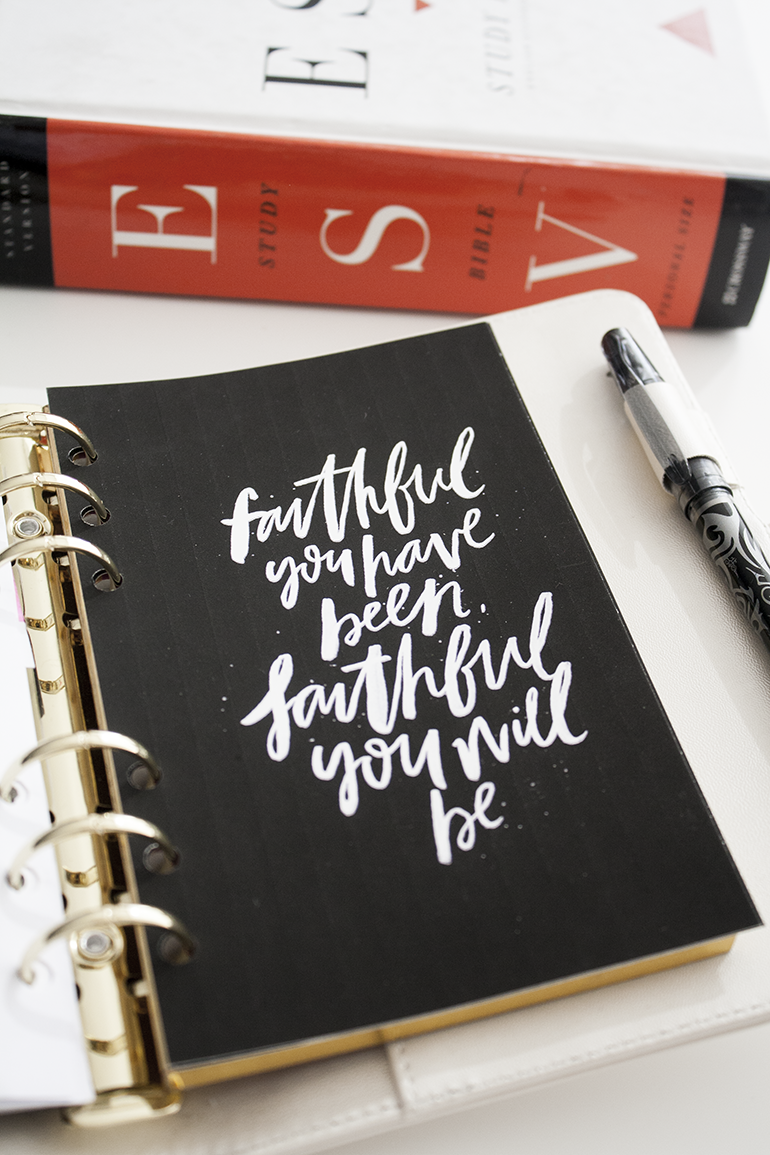 E S
STUDY
STANDARD
VERSION
E STUDY S BIBLE V PERSONAL SIZE
faithful
you have
been,
faithful
you will
be